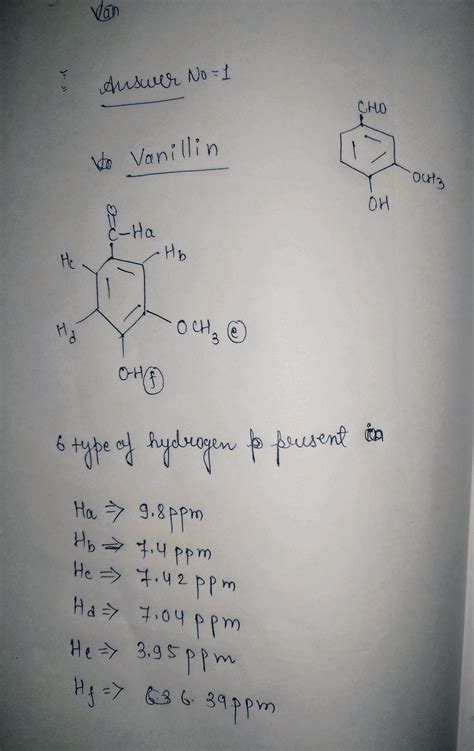 Van
Answer No=1
Vanillin
CHO
OCH3
OH
O
C-Ha
Hb
Hc
Hd
OCH3 e
O-H f
6 type of hydrogen present in
Ha => 9.8ppm
Hb => 7.4 ppm
Hc => 7.42 ppm
Hd => 7.04 ppm
He => 3.95 ppm
Hf => 6.39ppm